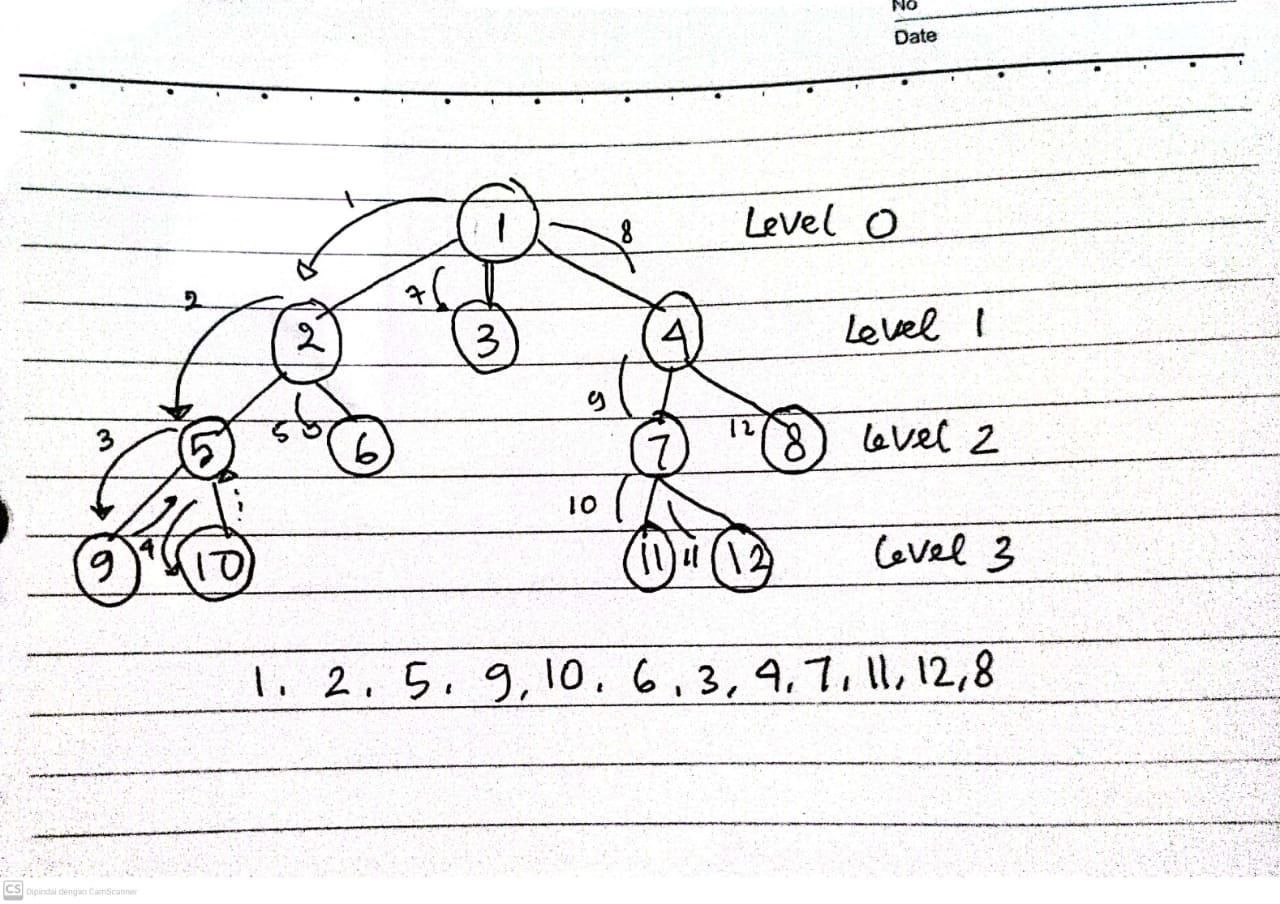 No
Date
1
1
8
Level 0
2
7
2
3
4
Level 1
9
3
5
5
6
7
12
8
Level 2
10
9
4
10
11
11
12
Level 3
1. 2. 5. 9, 10. 6. 3, 4. 7. 11, 12, 8
CS Dipindai dengan CamScanner